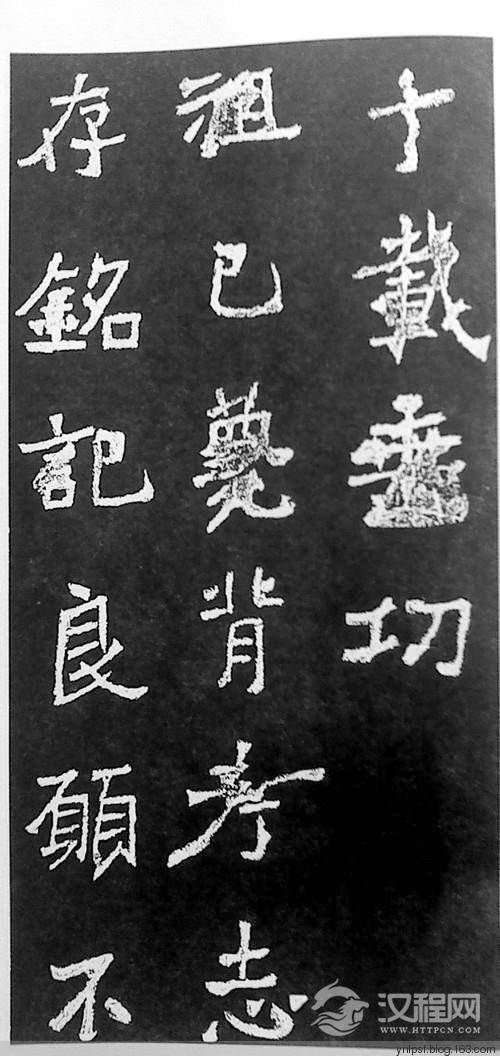 于載垂切
祖已薨背考志
存銘記良願不
汉程网
WWW.HTTPCN.COM
ynlpsf.blog.163.com